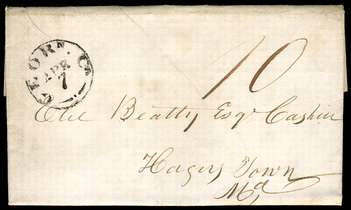 GEORN. Co
APR
7
10
Elie Beatty Esqr Cashier
Hagers Town
Md,